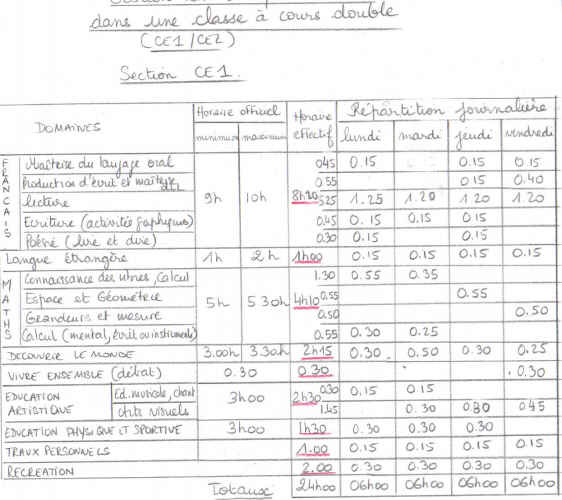 dans une classe à cours double
(CE1/CE2)
Section CE1.
DOMAINES Horaire officiel Horaire effectif Répartition journalière
minimum maximum lundi mardi jeudi vendredi
FRANCAIS
Maîtrise du langage oral 0.45 0.15 0.15 0.15
Production d'écrit et 0.55 0.15 0.40
lecture 9h 10h 8h20 5.25 1.25 1.20 1.20 1.20
Ecriture (activités graphiques) 0.45 0.15 0.15 0.15
Poésie (lire et dire) 0.30 0.15 0.15
Langue Etrangère 1h 2h 1h00 0.15 0.15 0.15 0.15
MATHS
Connaissance des nbres, Calcul 1.30 0.55 0.35
Espace et Géométrie 5h 5 30h 4h10 0.55 0.55
Grandeurs et mesure 0.50 0.50
Calcul (mental, écrit ou instrumental) 0.55 0.30 0.25
DECOUVRIR LE MONDE 3.00h 3.30h 2h15 0.30 0.50 0.30 0.25
VIVRE ENSEMBLE (débat) 0.30 0.30 0.30
EDUCATION ARTISTIQUE Ed. musicale, chant 3h00 2h30 0.30 0.15 0.15
Arts visuels 1.45 0.30 0.30 0.45
EDUCATION PHYSIQUE ET SPORTIVE 3h00 1h30 0.30 0.30 0.30
TRAUX PERSONNELS 1.00 0.15 0.15 0.15 0.15
RECREATION 2.00 0.30 0.30 0.30 0.30
Totaux 24h00 06h00 06h00 06h00 06h00